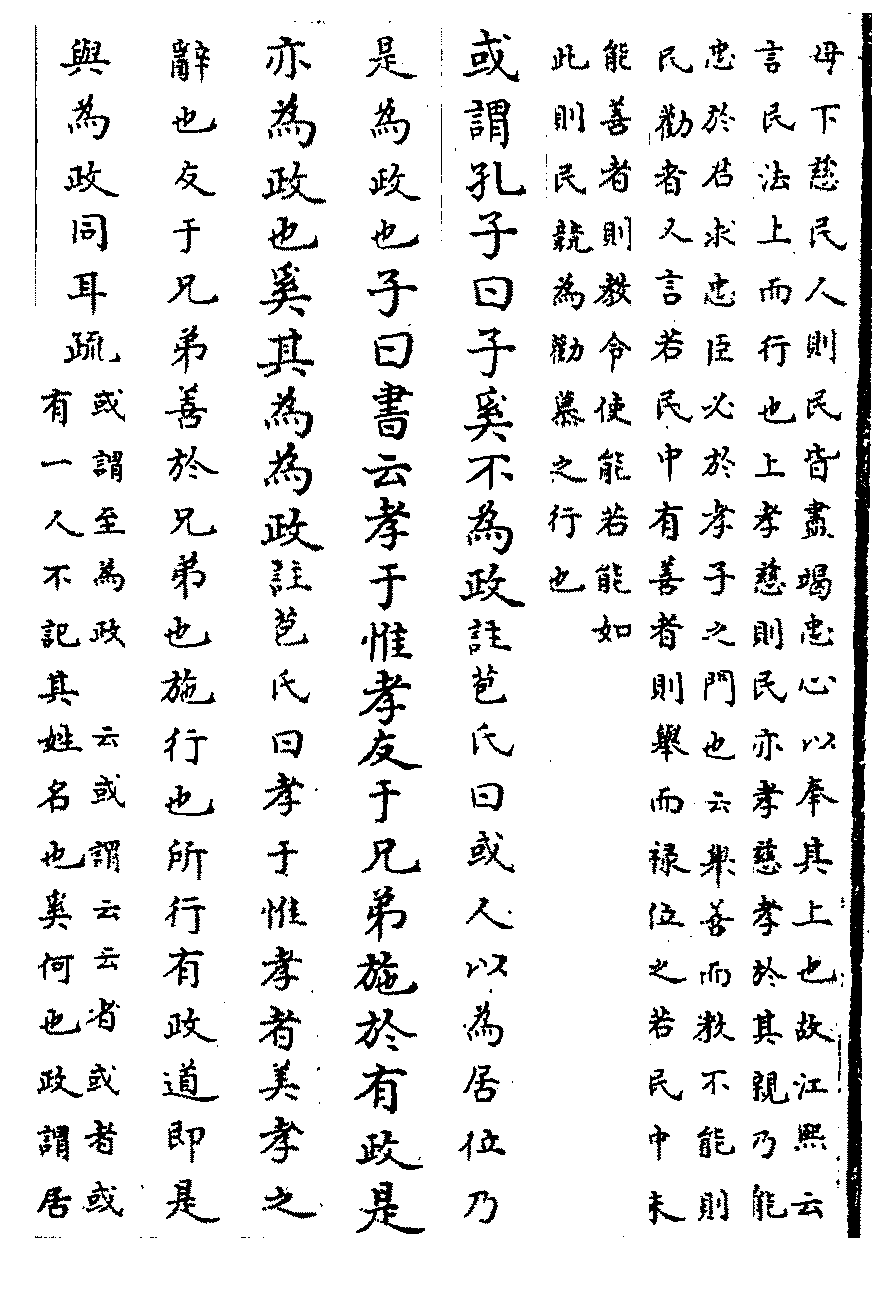 母下慈民人則民皆盡竭忠心以奉其上也故江熙云
言民法上而行也上孝慈則民亦孝慈孝於其親乃能
忠於君求忠臣必於孝子之門也云舉善而教不能則
民勸者又言若民中有善者則舉而禄位之若民中未
能善者則教令使能若能如
此則民競為勸慕之行也
或謂孔子曰子奚不為政註苞氏曰或人以為居位乃
是為政也子曰書云孝于惟孝友于兄弟施於有政是
亦為政也奚其為為政註苞氏曰孝于惟孝者美孝之
辭也友于兄弟善於兄弟也施行也所行有政道即是
與為政同耳疏
或謂至為政 云或謂云云者或者或
有一人不記其姓名也奚何也政謂居